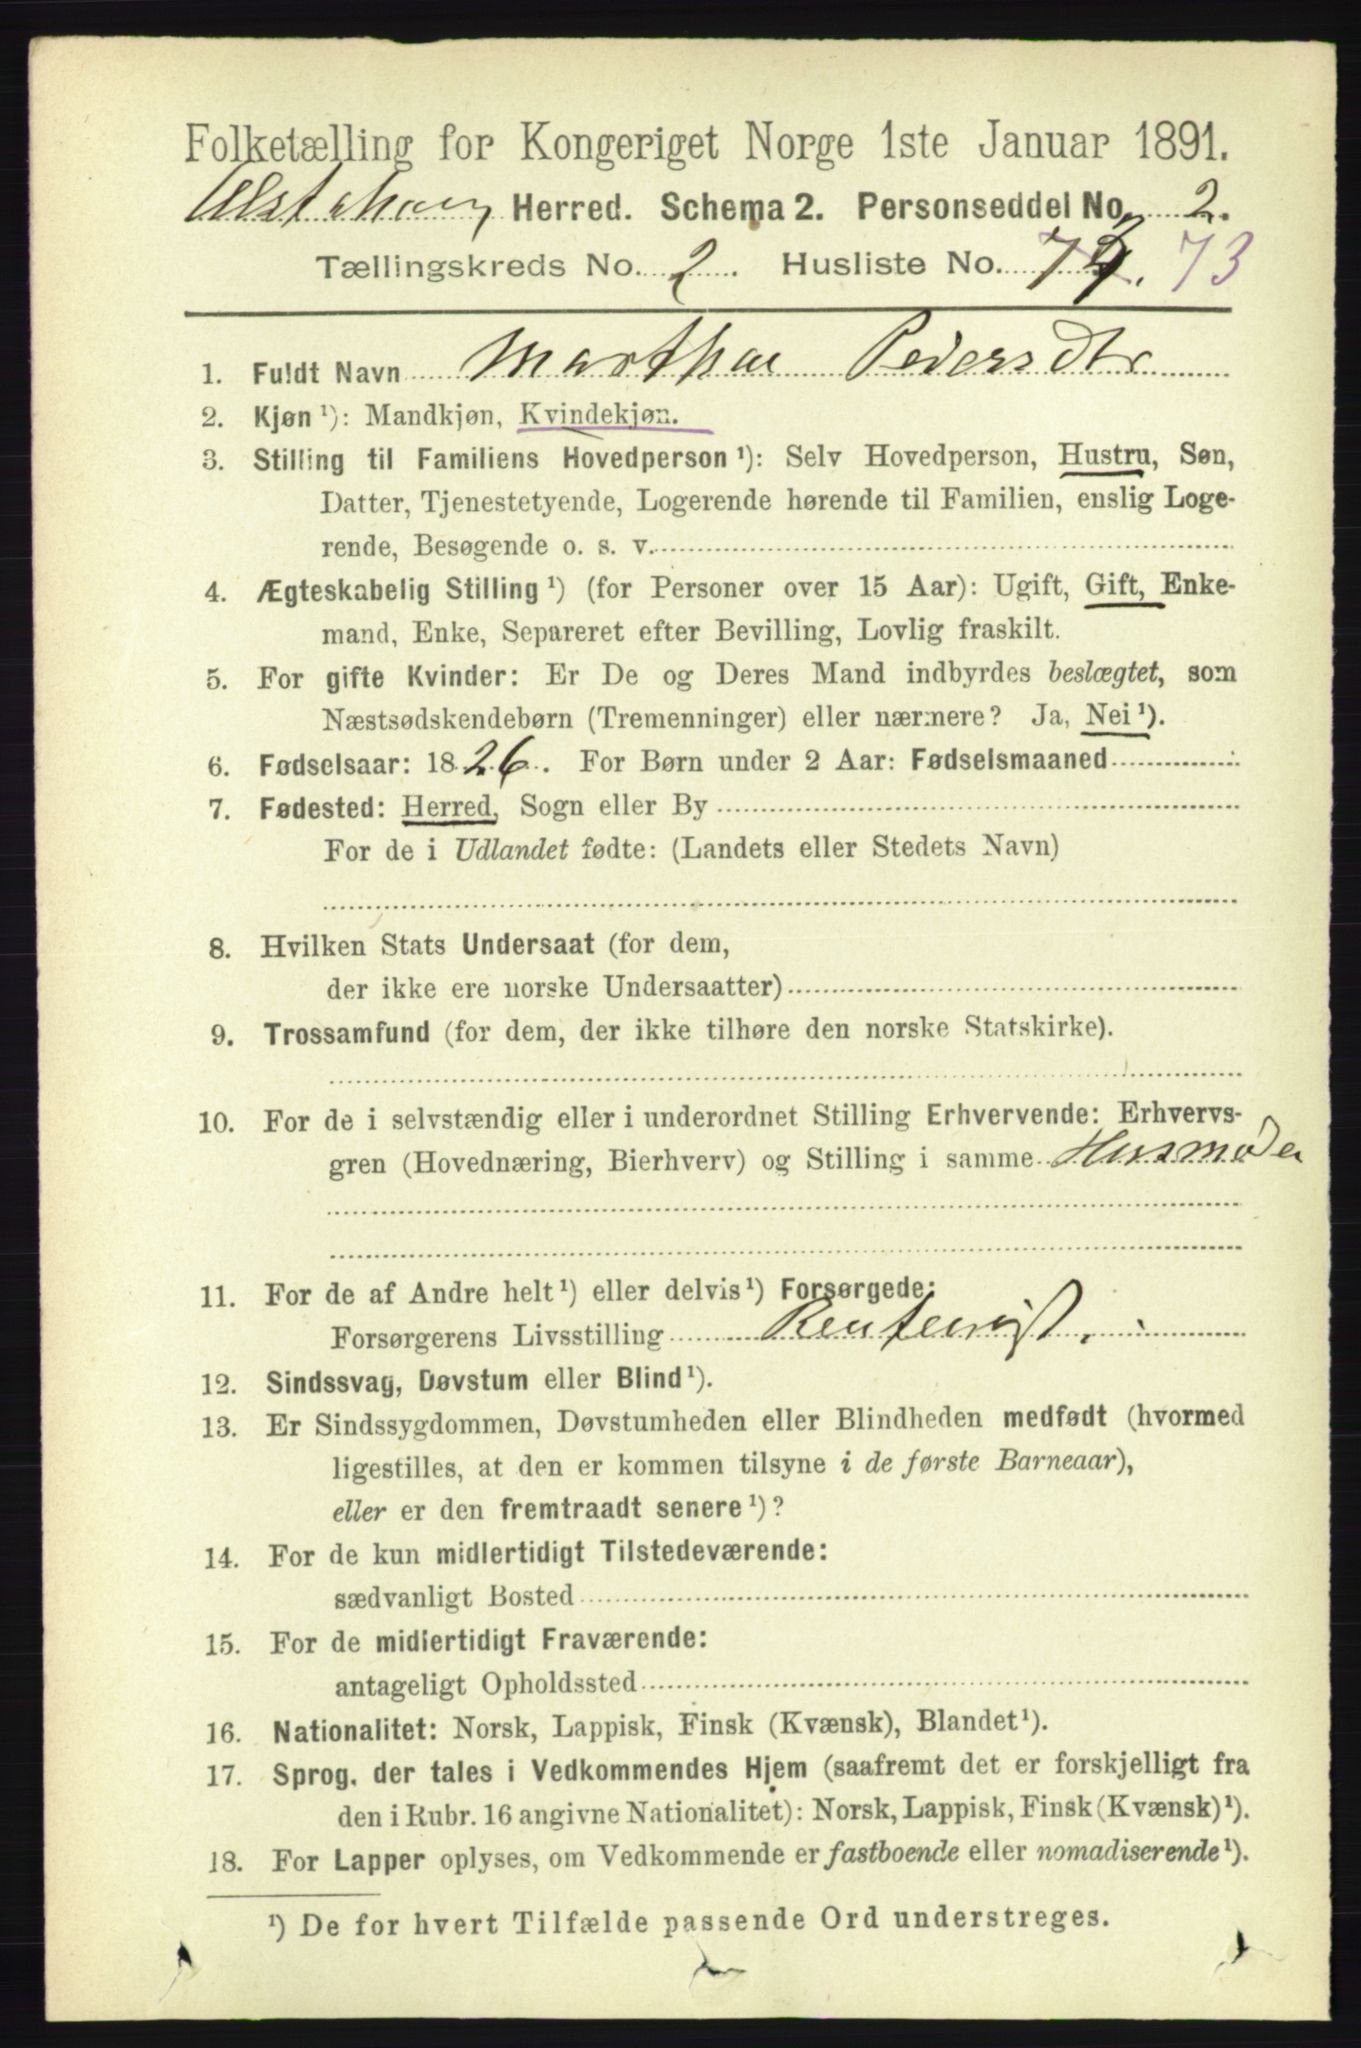 Folketælling for Kongeriget Norge 1ste Januar 1891.
Alstahoug Herred. Schema 2. Personseddel No. 2.
Tællingskreds No. 2. Husliste No. 73
1. Fuldt Navn Marthae Pedersdtr
2. Kjøn¹): Mandkjøn, Kvindekjøn.
3. Stilling til Familiens Hovedperson¹): Selv Hovedperson, Hustru, Søn,
Datter, Tjenestetyende, Logerende hørende til Familien, enslig Loge-
rende, Besøgende o. s. v.
4. Ægteskabelig Stilling¹) (for Personer over 15 Aar): Ugift, Gift, Enke-
mand, Enke, Separeret efter Bevilling, Lovlig fraskilt.
5. For gifte Kvinder: Er De og Deres Mand indbyrdes beslægtet, som
Næstsødskendebørn (Tremenninger) eller nærmere? Ja, Nei¹).
6. Fødselsaar: 1826. For Børn under 2 Aar: Fødselsmaaned
7. Fødested: Herred, Sogn eller By
For de i Udlandet fødte: (Landets eller Stedets Navn)
8. Hvilken Stats Undersaat (for dem,
der ikke ere norske Undersaatter)
9. Trossamfund (for dem, der ikke tilhøre den norske Statskirke).
10. For de i selvstændig eller i underordnet Stilling Erhvervende: Erhvervs-
gren (Hovednæring, Bierhverv) og Stilling i samme Husmoder
11. For de af Andre helt¹) eller delvis¹) Forsørgede:
Forsørgerens Livsstilling Rentenist.
12. Sindssvag, Døvstum eller Blind¹).
13. Er Sindssygdommen, Døvstumheden eller Blindheden medfødt (hvormed
ligestilles, at den er kommen tilsyne i de første Barneaar),
eller er den fremtraadt senere¹)?
14. For de kun midlertidigt Tilstedeværende:
sædvanligt Bosted
15. For de midlertidigt Fraværende:
antageligt Opholdssted
16. Nationalitet: Norsk, Lappisk, Finsk (Kvænsk), Blandet¹).
17. Sprog, der tales i Vedkommendes Hjem (saafremt det er forskjelligt fra
den i Rubr. 16 angivne Nationalitet): Norsk, Lappisk, Finsk (Kvænsk)¹).
18. For Lapper oplyses, om Vedkommende er fastboende eller nomadiserende¹).
¹) De for hvert Tilfælde passende Ord understreges.